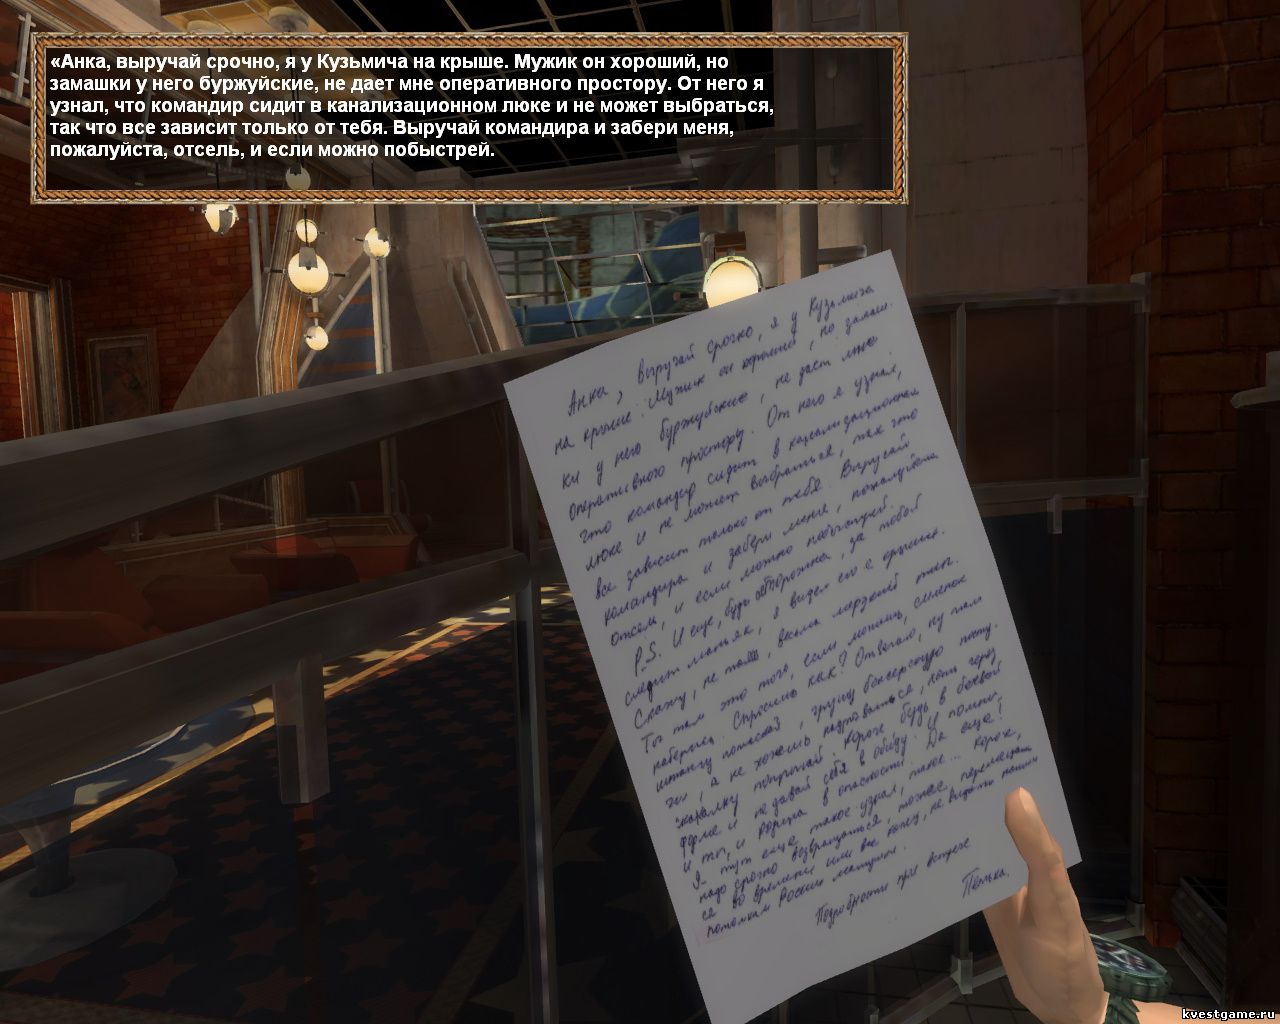 «Анка, выручай срочно, я у Кузьмича на крыше. Мужик он хороший, но
замашки у него буржуйские, не дает мне оперативного простору. От него я
узнал, что командир сидит в канализационном люке и не может выбраться,
так что все зависит только от тебя. Выручай командира и забери меня,
пожалуйста, отсель, и если можно побыстрей.
Анка, выручай срочно, я у Кузьмича
на крыше. Мужик он хороший, но замаш-
ки у него буржуйские, не дает мне
оперативного простору. От него я узнал,
что командир сидит в канализационном
люке и не может выбраться, так что
все зависит только от тебя. Выручай
командира и забери меня, пожалуйста
отсель, и если можно побыстрей.
P.S. И еще, будь осторожна, за тобой
следит маньяк, я видел его с крыши.
Скажу, не таясь, весьма мерзкий тип.
Ты там это того, если можешь, слепок
наберись. Спросишь как? Отвечаю, ну там
штангу потаскай, грушу боксерскую
а не хочешь надрываться, хоть через
скакалку попрыгай. Короче будь в боевой
форме и не давай себя в обиду. И помни,
и ты, и Родина в опасности! Да еще!
Я тут еще такое узнал, такое... короче,
надо срочно возвращаться, можем перемещать
ся во времени или все, конец, не видать нашим
потомкам России матушки.
Подробности при встрече
Петька.
kvestgame.ru